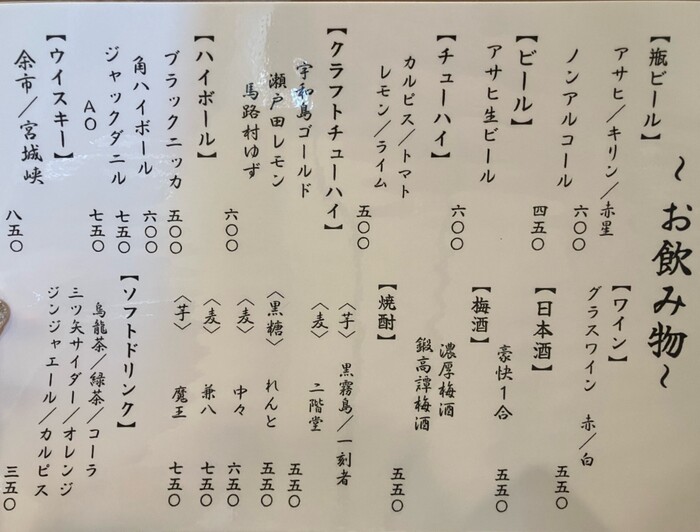 ～お飲み物～
【瓶ビール】
アサヒ／キリン／赤星 六〇〇
ノンアルコール 四五〇
【ビール】
アサヒ生ビール 六〇〇
【チューハイ】
カルピス／トマト
レモン／ライム 五〇〇
【クラフトチューハイ】
宇和島ゴールド
瀬戸田レモン
馬路村ゆず 六〇〇
【ハイボール】
ブラックニッカ 五〇〇
角ハイボール 六〇〇
ジャックダニル 七五〇
AO 七五〇
【ウイスキー】
余市／宮城峡 八五〇
【ワイン】
グラスワイン 赤／白 五五〇
【日本酒】
豪快1合 五五〇
【梅酒】
濃厚梅酒
鍛高譚梅酒 五五〇
【焼酎】
〈芋〉 黒霧島／一刻者
〈麦〉 二階堂 五五〇
〈黒糖〉 れんと 五五〇
〈麦〉 中々 六五〇
〈麦〉 兼八 七五〇
〈芋〉 魔王 七五〇
【ソフトドリンク】
烏龍茶／緑茶／コーラ
三ツ矢サイダー／オレンジ
ジンジャエール／カルピス 三五〇